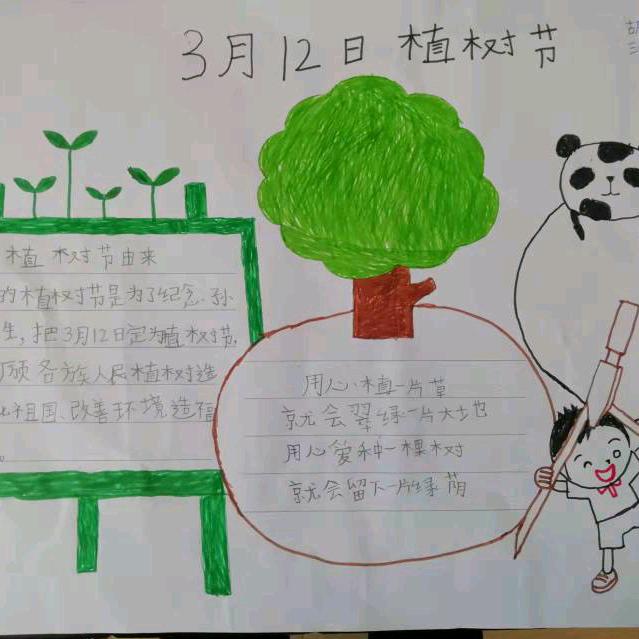 3月12日 植树节
植树节由来
的植树节是为了纪念孙
生,把3月12日定为植树节,
各族人民植树造
祖国、改善环境造福
。
用心植一片草
就会翠绿一片大地
用心爱种一棵树
就会留下一片绿荫